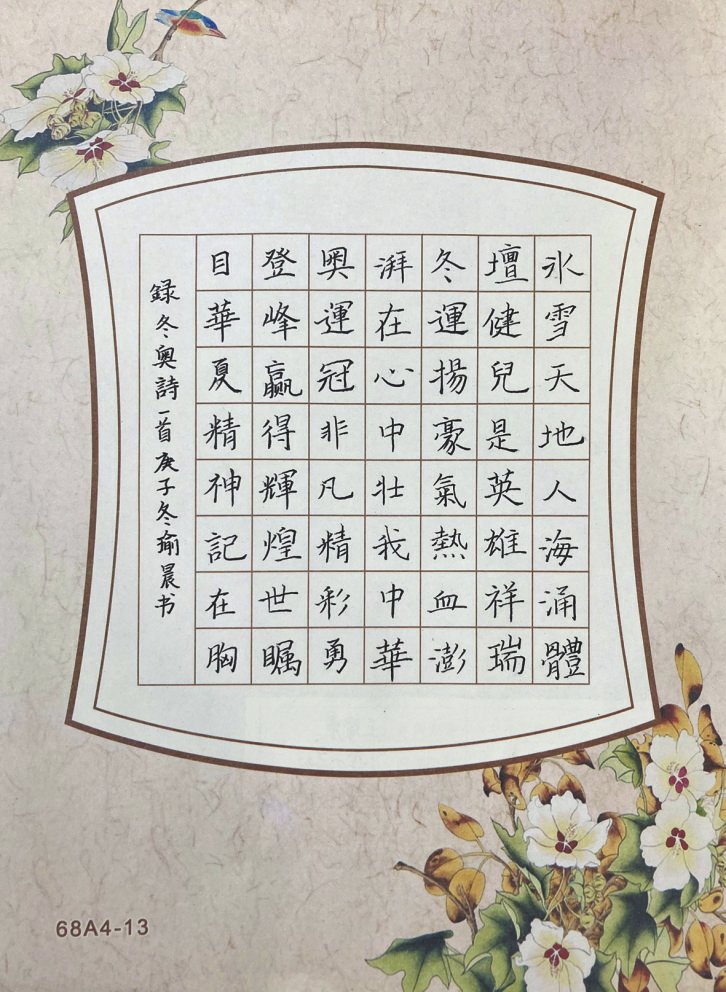 氷雪天地人海涌體
壇健兒是英雄祥瑞
冬運揚豪氣熱血澎
湃在心中壯我中華
奥運冠非凡精彩勇
登峰贏得輝煌世瞩
目華夏精神記在胸
録冬奥詩一首庚子冬瑜晨书
68A4-13